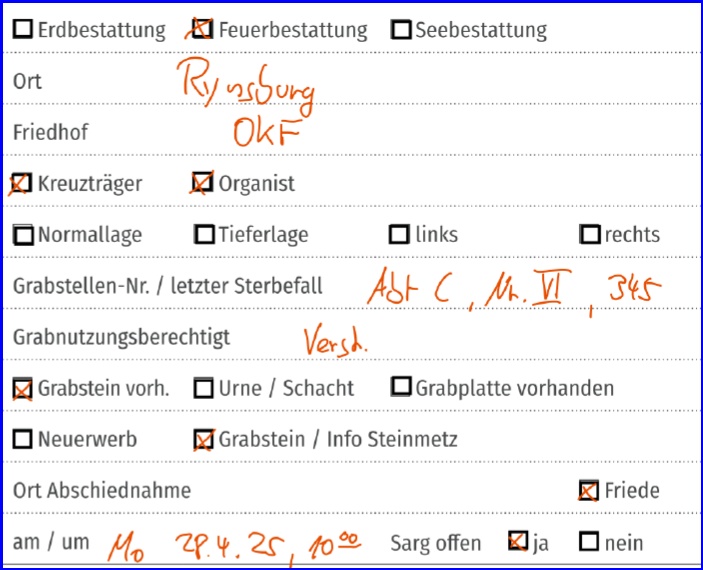 ☐ Erdbestattung ☒ Feuerbestattung ☐ Seebestattung
Ort Rynsburg
Friedhof OKF
☒ Kreuzträger ☒ Organist
☐ Normallage ☐ Tieferlage ☐ links ☐ rechts
Grabstellen-Nr. / letzter Sterbefall Abt C, Nr. VI, 345
Grabnutzungsberechtigt Verst.
☒ Grabstein vorh. ☐ Urne / Schacht ☐ Grabplatte vorhanden
☐ Neuerwerb ☒ Grabstein / Info Steinmetz
Ort Abschiednahme ☒ Friede
am / um Mo 28.4.25, 10⁰⁰ Sarg offen ☒ ja ☐ nein